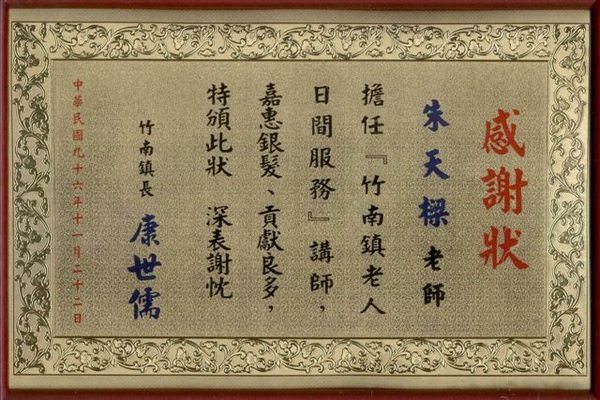 感謝狀
朱天樑老師
擔任『竹南鎮老人
日間服務』講師，
嘉惠銀髮、貢獻良多，
特頒此狀　深表謝忱
竹南鎮長　康世儒
中華民國九十六年十一月二十二日